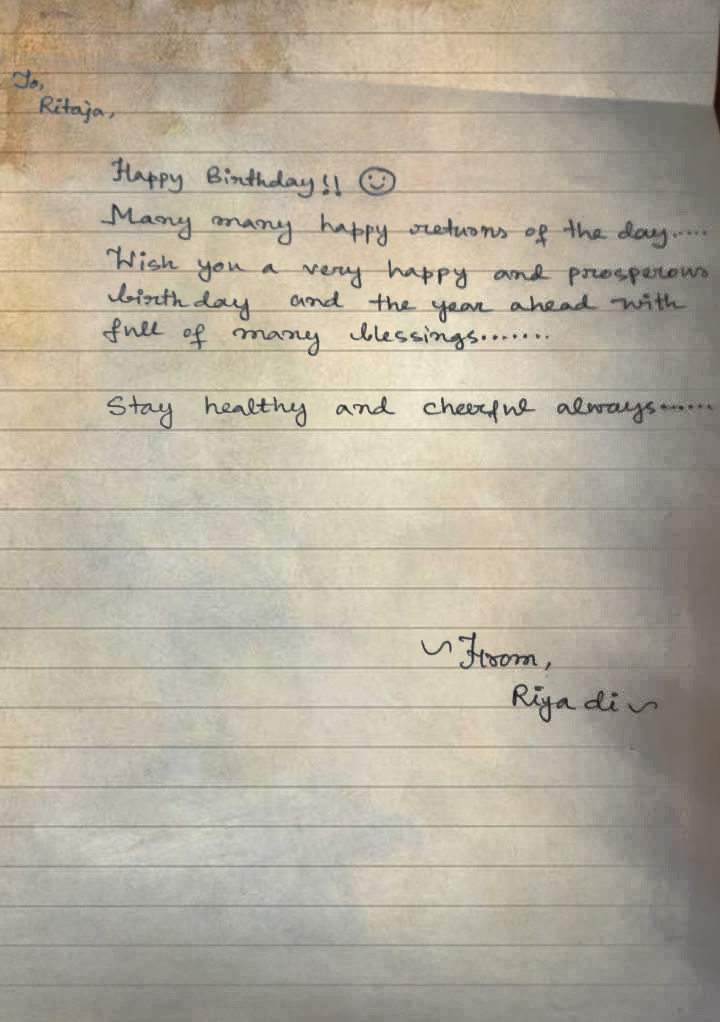 To,
Ritaja,
Happy Birthday!! ☺
Many many happy returns of the day.....
Wish you a very happy and prosperous
birthday and the year ahead with
full of many blessings.......
Stay healthy and cheerful always......
~From,
Riya di~